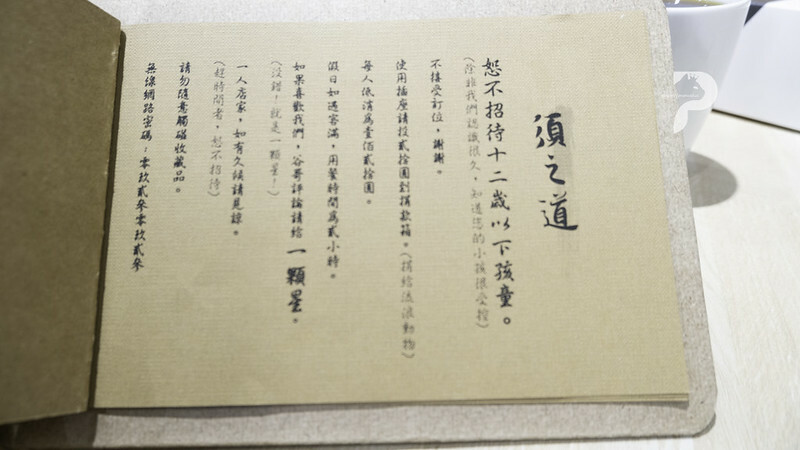 須之道
恕不招待十二歲以下孩童。
(除非我們認識很久，知道您的小孩很受控)
不接受訂位，謝謝。
使用插座請投貳拾圓到捐款箱。(捐給流浪動物)
每人低消為壹佰貳拾圓。
假日如遇客滿，用餐時間為貳小時。
如果喜歡我們，谷哥評論請給一顆星。
(沒錯！就是一顆星！)
一人店家，如有久候請見諒。
(趕時間者，恕不招待)
請勿隨意觸碰收藏品。
無線網路密碼：零玖貳參零玖貳參